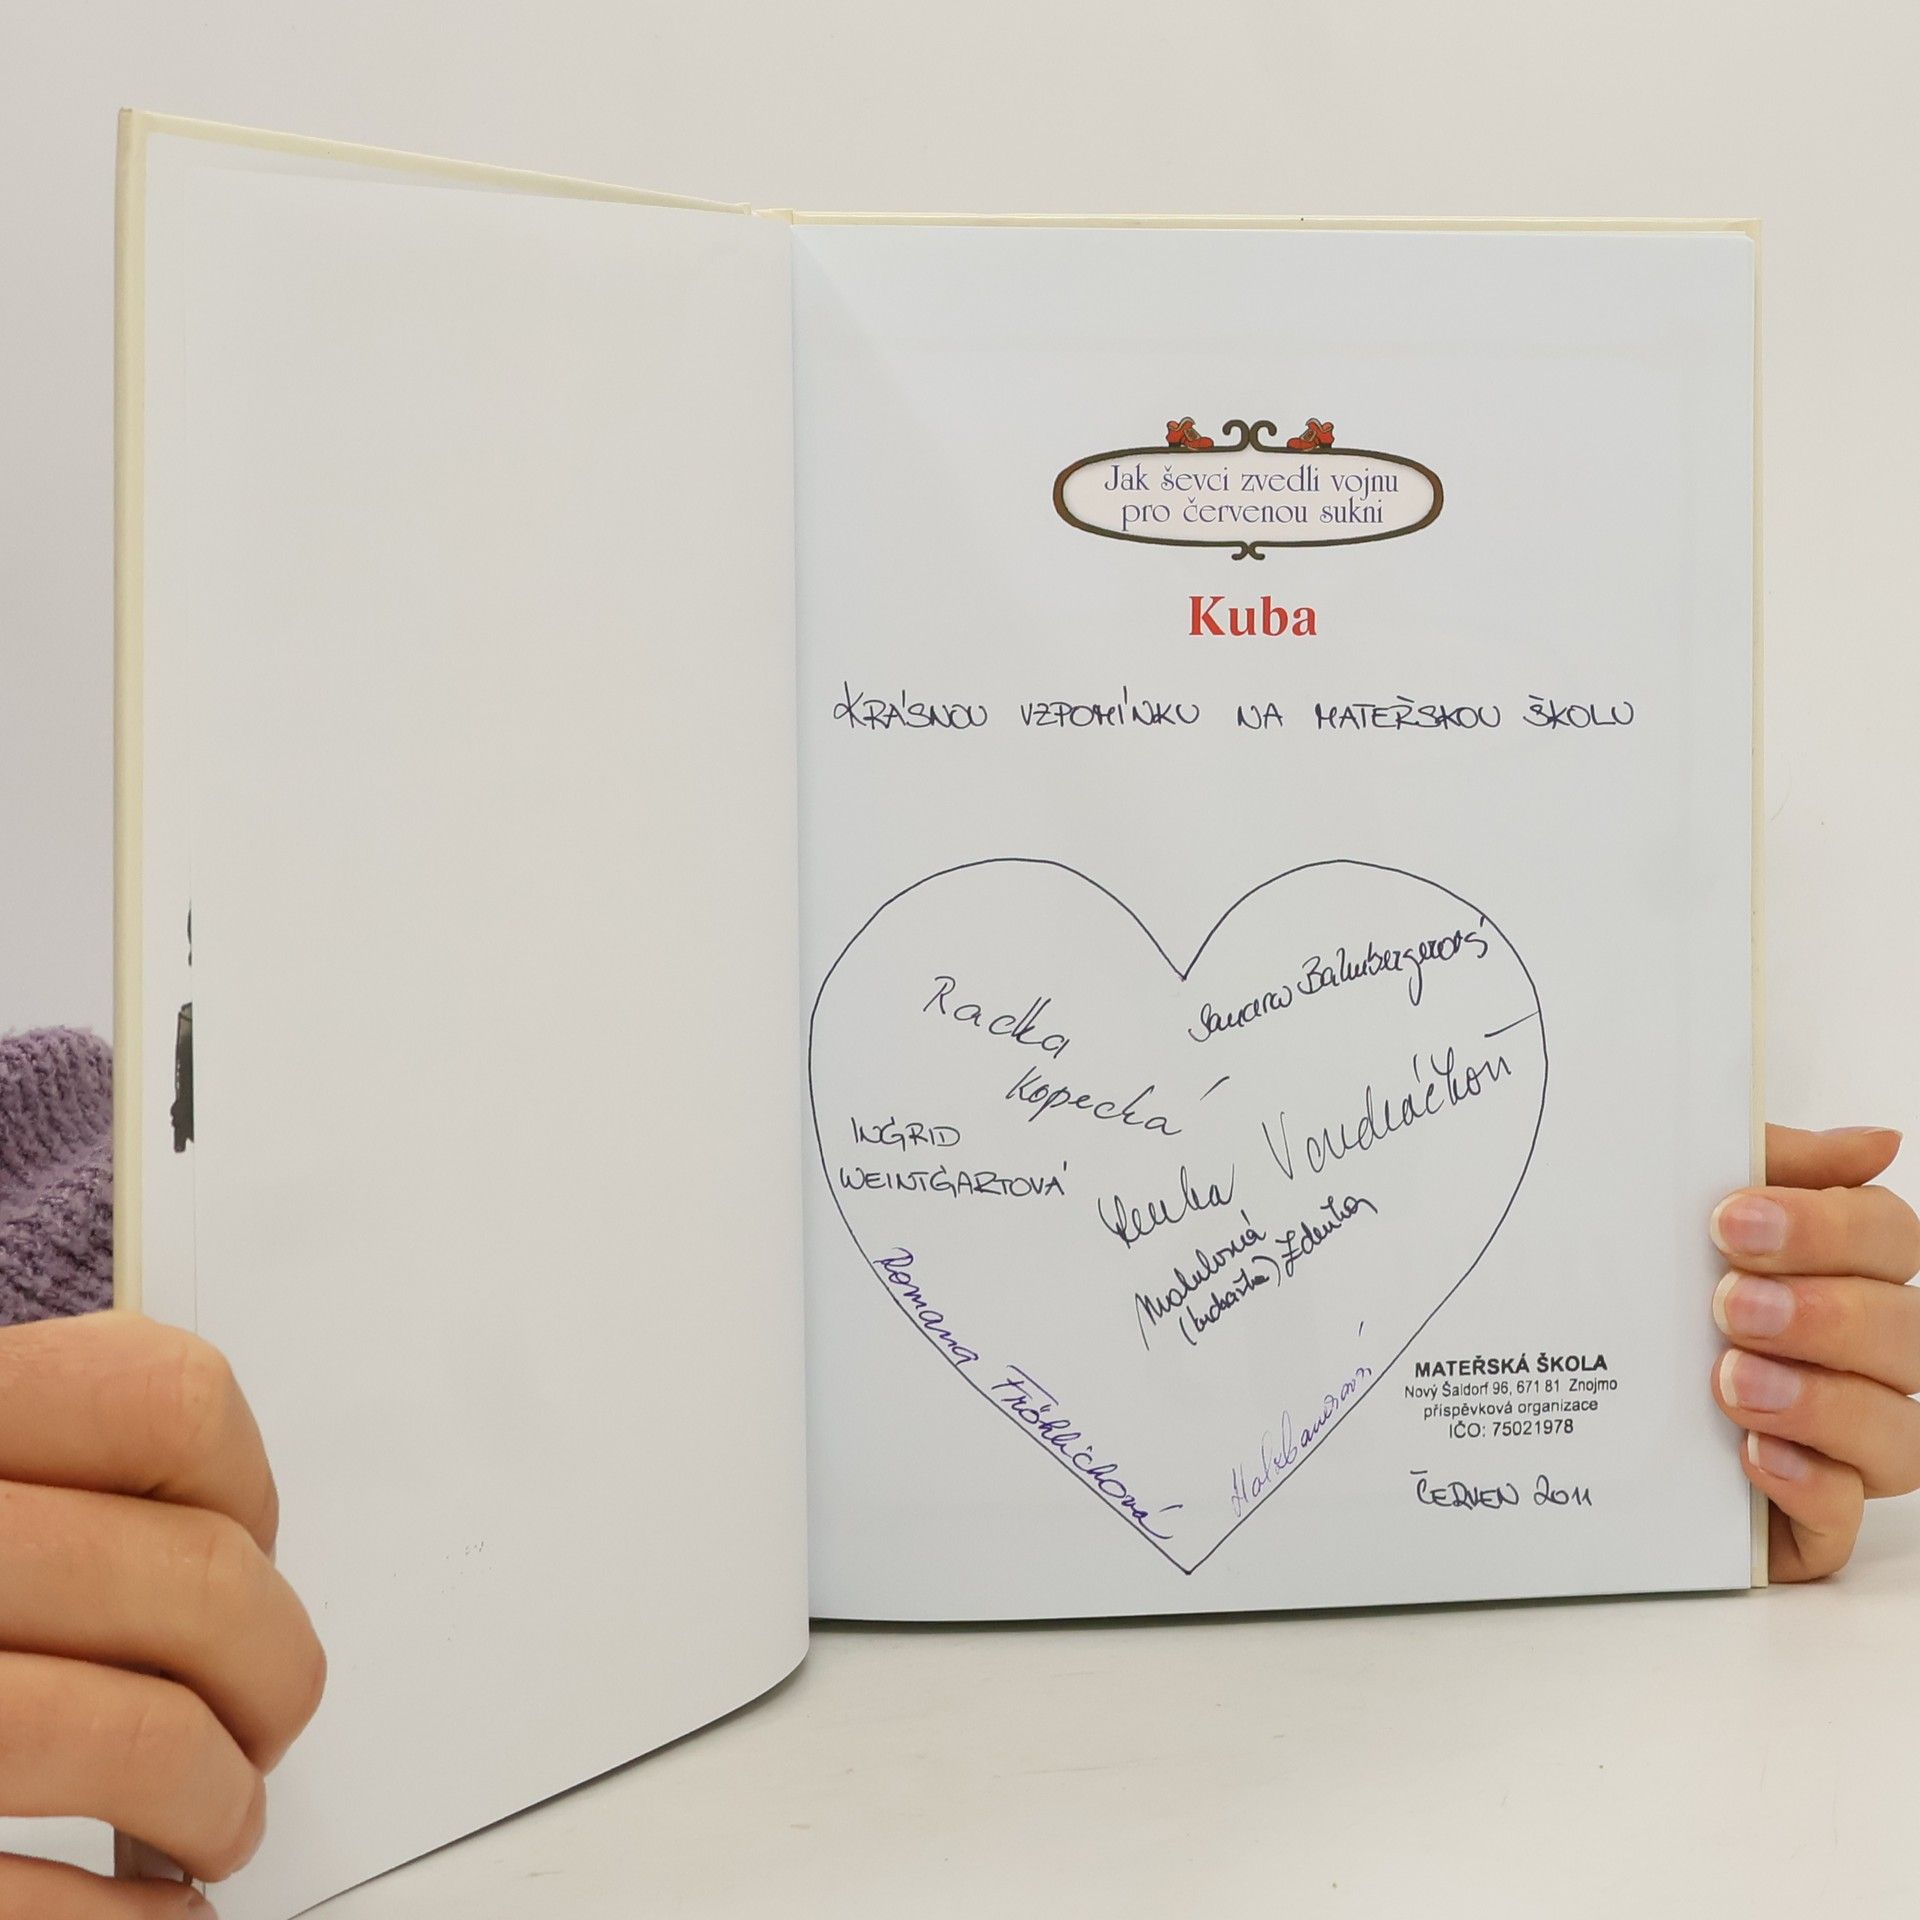 Jak ševci zvedli vojnu
pro červenou sukni
Kuba
KRÁSNOU VZPOMÍNKU NA MATEŘSKOU ŠKOLU
Radka
Kopecká
Bahnbergerová
INGRID
WEINTGARTOVÁ
Lenka Vondráčková
Zdeňka
(kuchařka)
Romana Fröhlichová
Holzbauerová
MATEŘSKÁ ŠKOLA
Nový Šaldorf 96, 671 81 Znojmo
příspěvková organizace
IČO: 75021978
ČERVEN 2011